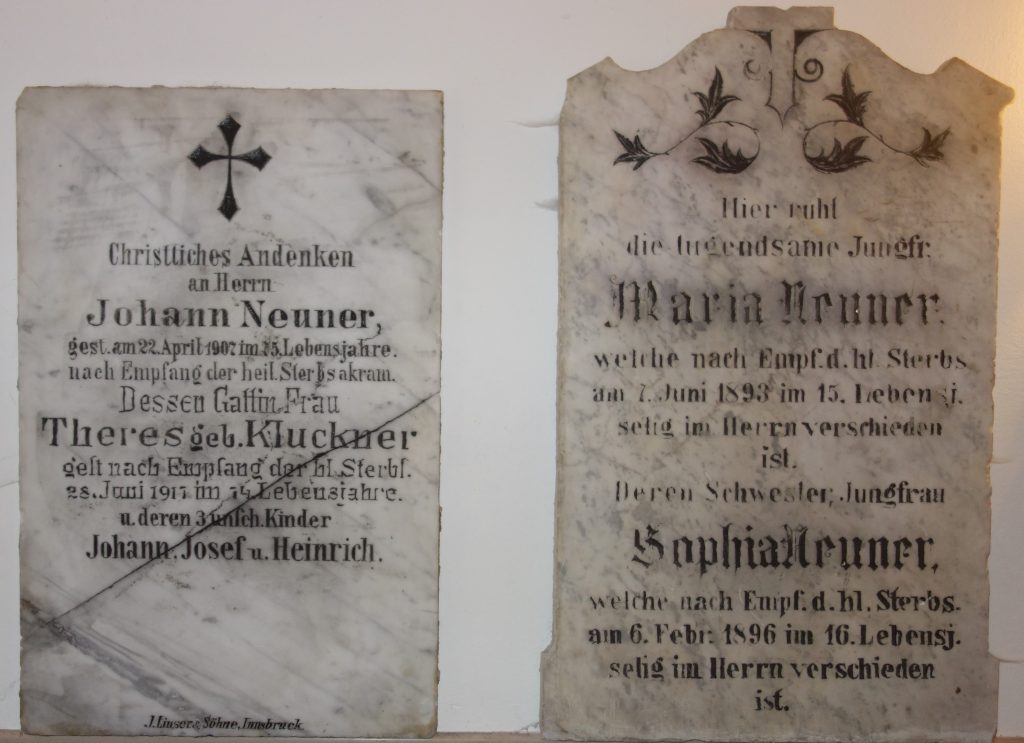 Christliches Andenken
an Herrn
Johann Neuner,
gest. am 22. April 1907 im 75. Lebensjahre.
nach Empfang der heil. Sterbsakram.
Dessen Gattin Frau
Theres geb. Kluckner
gest nach Empfang der hl. Sterbs.
28. Juni 1917 im 74 Lebensjahre.
u. deren 3 unsch. Kinder
Johann. Josef u. Heinrich.
J. Linser & Söhne, Innsbruck
Hier ruht
die tugendsame Jungfr.
Maria Neuner.
welche nach Empf. d. hl. Sterbs
am 7. Juni 1893 im 15. Lebensj.
selig im Herrn verschieden
ist.
Deren Schwester, Jungfrau
Sophia Neuner,
welche nach Empf. d. hl. Sterbs.
am 6. Febr. 1896 im 16. Lebensj.
selig im Herrn verschieden
ist.